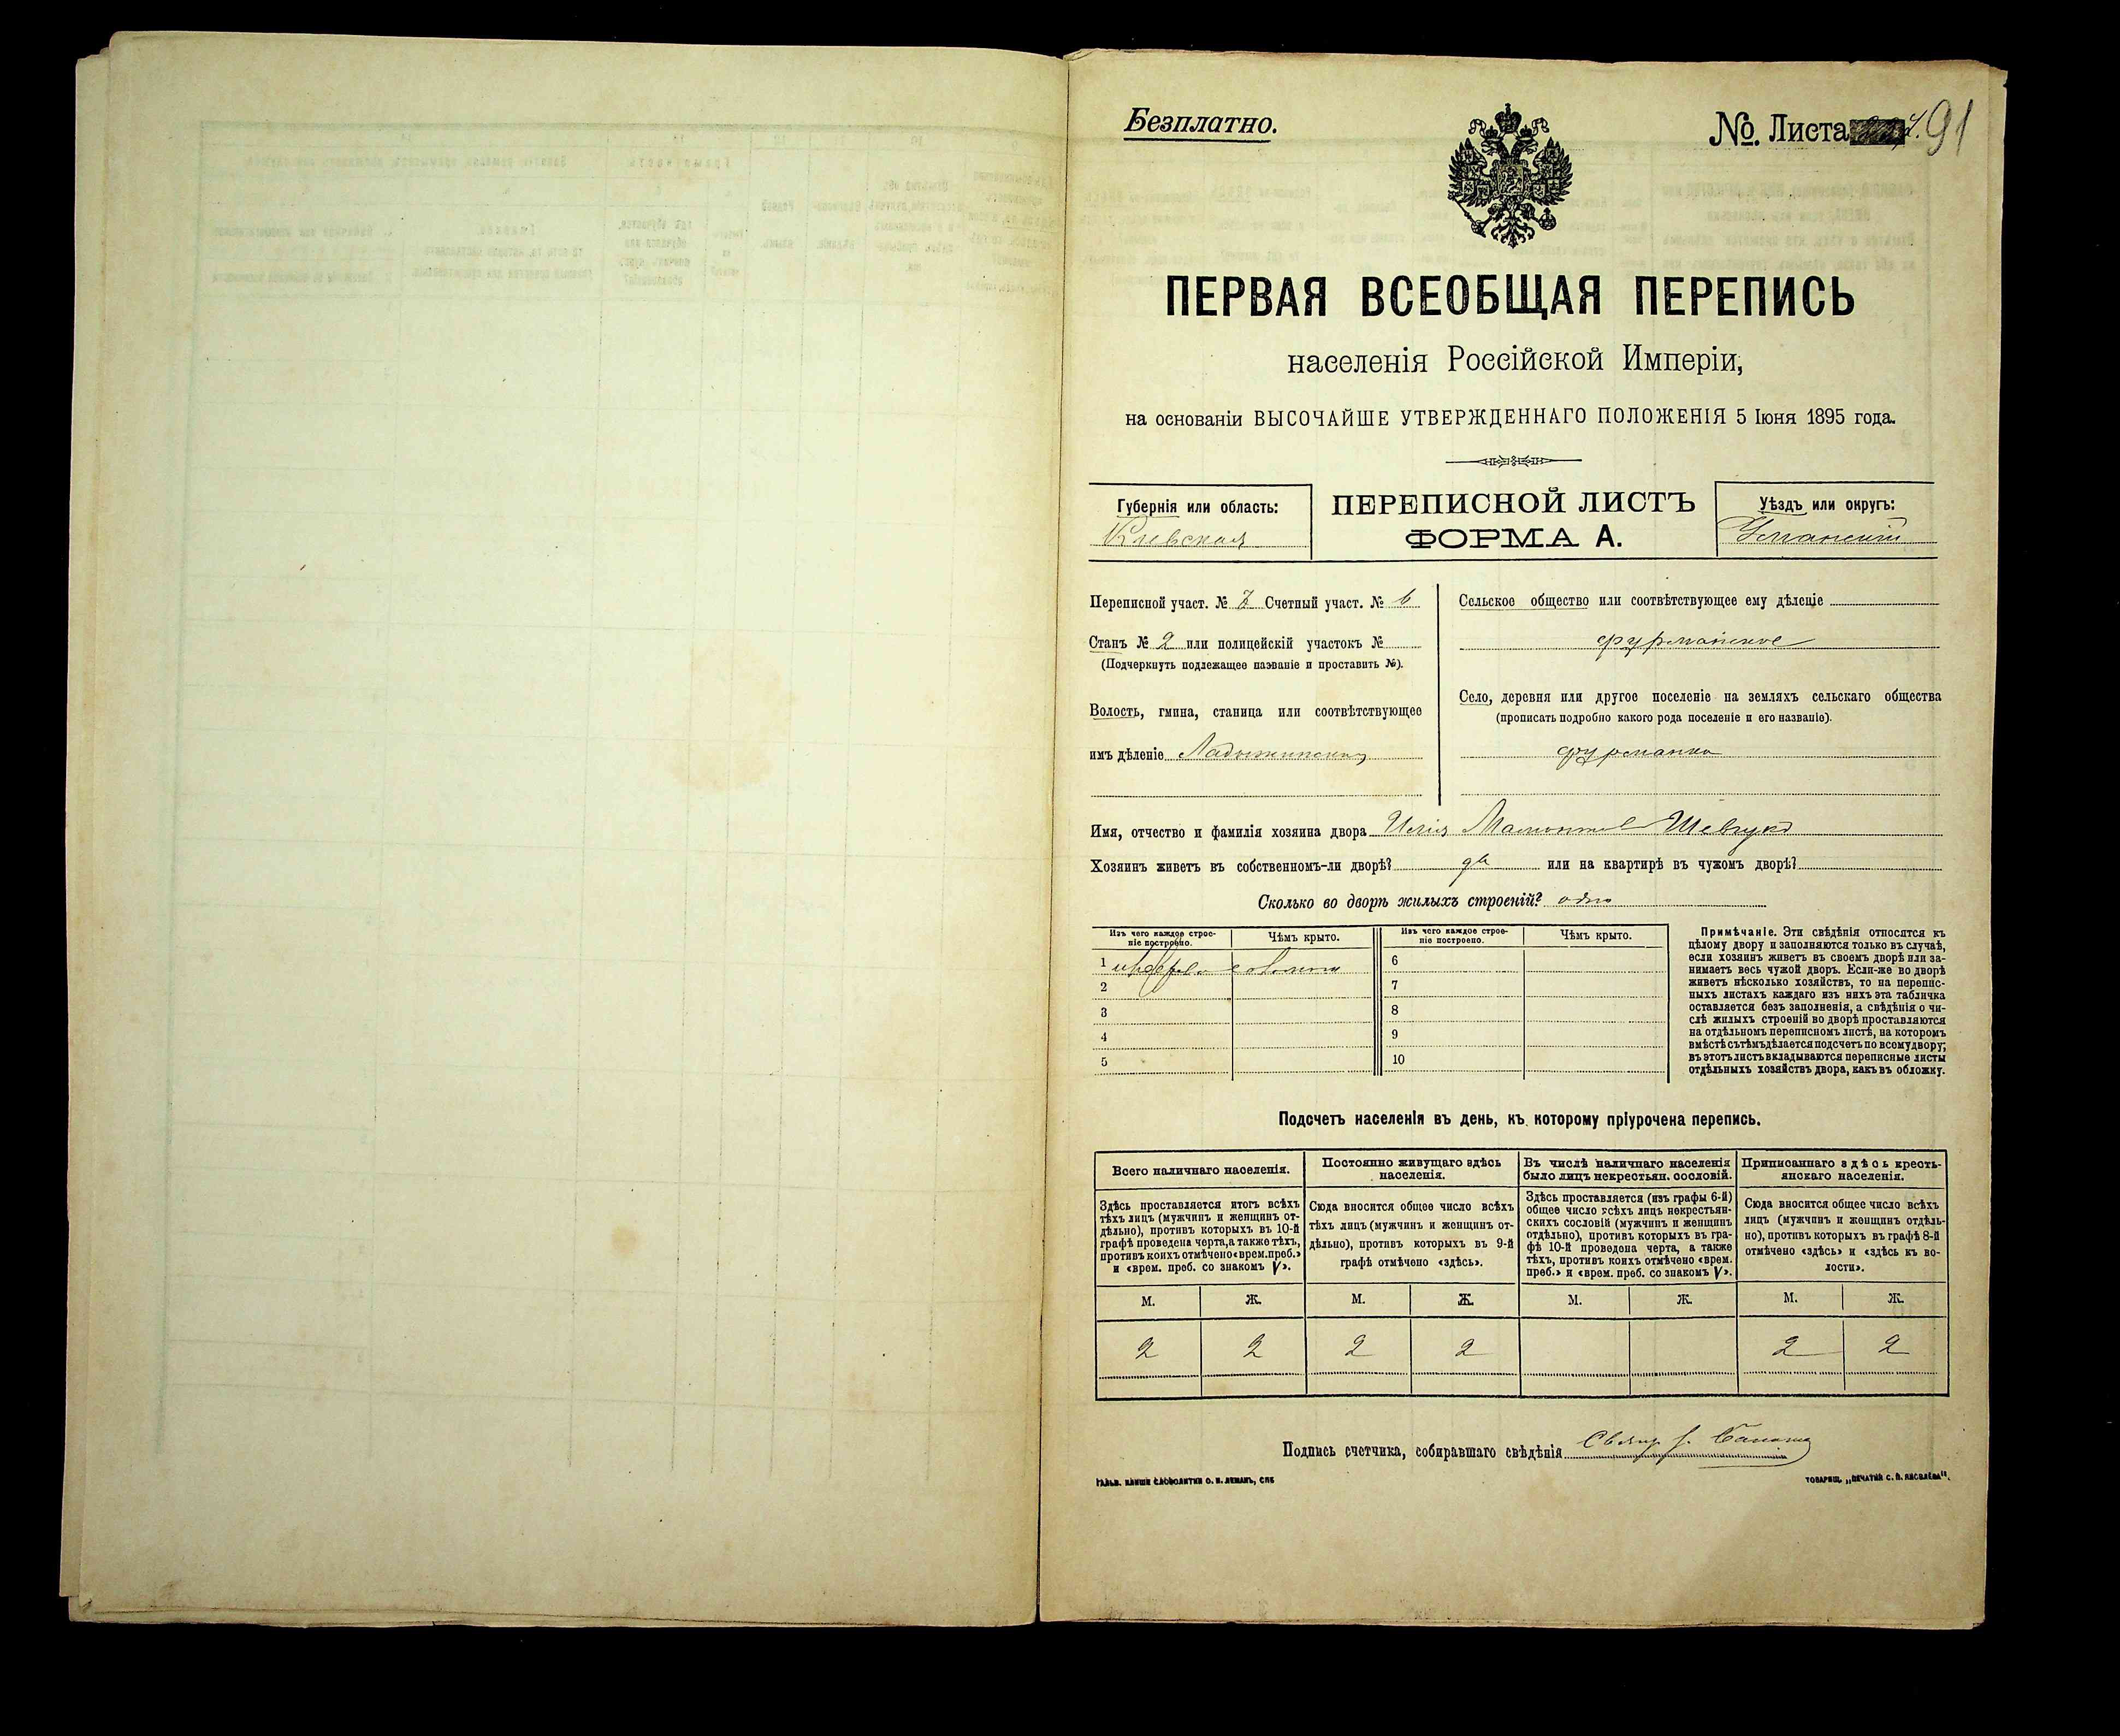 Безплатно.
№. Листа 91
ПЕРВАЯ ВСЕОБЩАЯ ПЕРЕПИСЬ
населенія Россійской Имперіи,
на основаніи ВЫСОЧАЙШЕ УТВЕРЖДЕННАГО ПОЛОЖЕНІЯ 5 Іюня 1895 года.
Губернія или область:
Кіевская
ПЕРЕПИСНОЙ ЛИСТЪ
ФОРМА А.
Уѣздъ или округъ:
Уманскій
Переписной участ. № Счетный участ. № 6
Станъ № 2 или полицейскій участокъ №
(Подчеркнуть подлежащее названіе и проставить №).
Волость, гмина, станица или соотвѣтствующее
имъ дѣленіе Ладыжинская
Сельское общество или соотвѣтствующее ему дѣленіе
фурманское
Село, деревня или другое поселеніе на земляхъ сельскаго общества
(прописать подробно какого рода поселеніе и его названіе).
фурманка
Имя, отчество и фамилія хозяина двора Шевчукъ
Хозяинъ живетъ въ собственномъ-ли дворѣ? да или на квартирѣ въ чужомъ дворѣ?
Сколько во дворѣ жилыхъ строеній? одно
Изъ чего каждое строе-
ніе построено.
Чѣмъ крыто.
1 соломой
2
3
4
5
Изъ чего каждое строе-
ніе построено.
Чѣмъ крыто.
6
7
8
9
10
Примѣчаніе. Эти свѣдѣнія относятся къ
цѣлому двору и заполняются только въ случаѣ,
если хозяинъ живетъ въ своемъ дворѣ или за-
нимаетъ весь чужой дворъ. Если-же во дворѣ
живетъ нѣсколько хозяйствъ, то на перепис-
ныхъ листахъ каждаго изъ нихъ эта табличка
оставляется безъ заполненія, а свѣдѣнія о чи-
слѣ жилыхъ строеній во дворѣ проставляются
на отдѣльномъ переписномъ листѣ, на которомъ
вмѣстѣ съ тѣмъ дѣлается подсчетъ по всему двору;
въ этотъ листъ вкладываются переписные листы
отдѣльныхъ хозяйствъ двора, какъ въ обложку.
Подсчетъ населенія въ день, къ которому пріурочена перепись.
Всего наличнаго населенія.
Здѣсь проставляется итогъ всѣхъ
тѣхъ лицъ (мужчинъ и женщинъ от-
дѣльно), противъ которыхъ въ 10-й
графѣ проведена черта, а также тѣхъ,
противъ коихъ отмѣчено «врем. преб.»
и «врем. преб. со знакомъ V».
Постоянно живущаго здѣсь
населенія.
Сюда вносится общее число всѣхъ
тѣхъ лицъ (мужчинъ и женщинъ от-
дѣльно), противъ которыхъ въ 9-й
графѣ отмѣчено «здѣсь».
Въ числѣ наличнаго населенія
было лицъ некрестьян. сословій.
Здѣсь проставляется (изъ графы 6-й)
общее число всѣхъ лицъ некрестьян-
скихъ сословій (мужчинъ и женщинъ
отдѣльно), противъ которыхъ въ гра-
фѣ 10-й проведена черта, а также
тѣхъ, противъ коихъ отмѣчено «врем.
преб.» и «врем. преб. со знакомъ V».
Приписаннаго здѣсь кресть-
янскаго населенія.
Сюда вносится общее число всѣхъ
лицъ (мужчинъ и женщинъ отдѣль-
но), противъ которыхъ въ графѣ 8-й
отмѣчено «здѣсь» и «здѣсь къ во-
лости».
М. Ж. М. Ж. М. Ж. М. Ж.
2 2 2 2 2 2
Подпись счетчика, собиравшаго свѣдѣнія